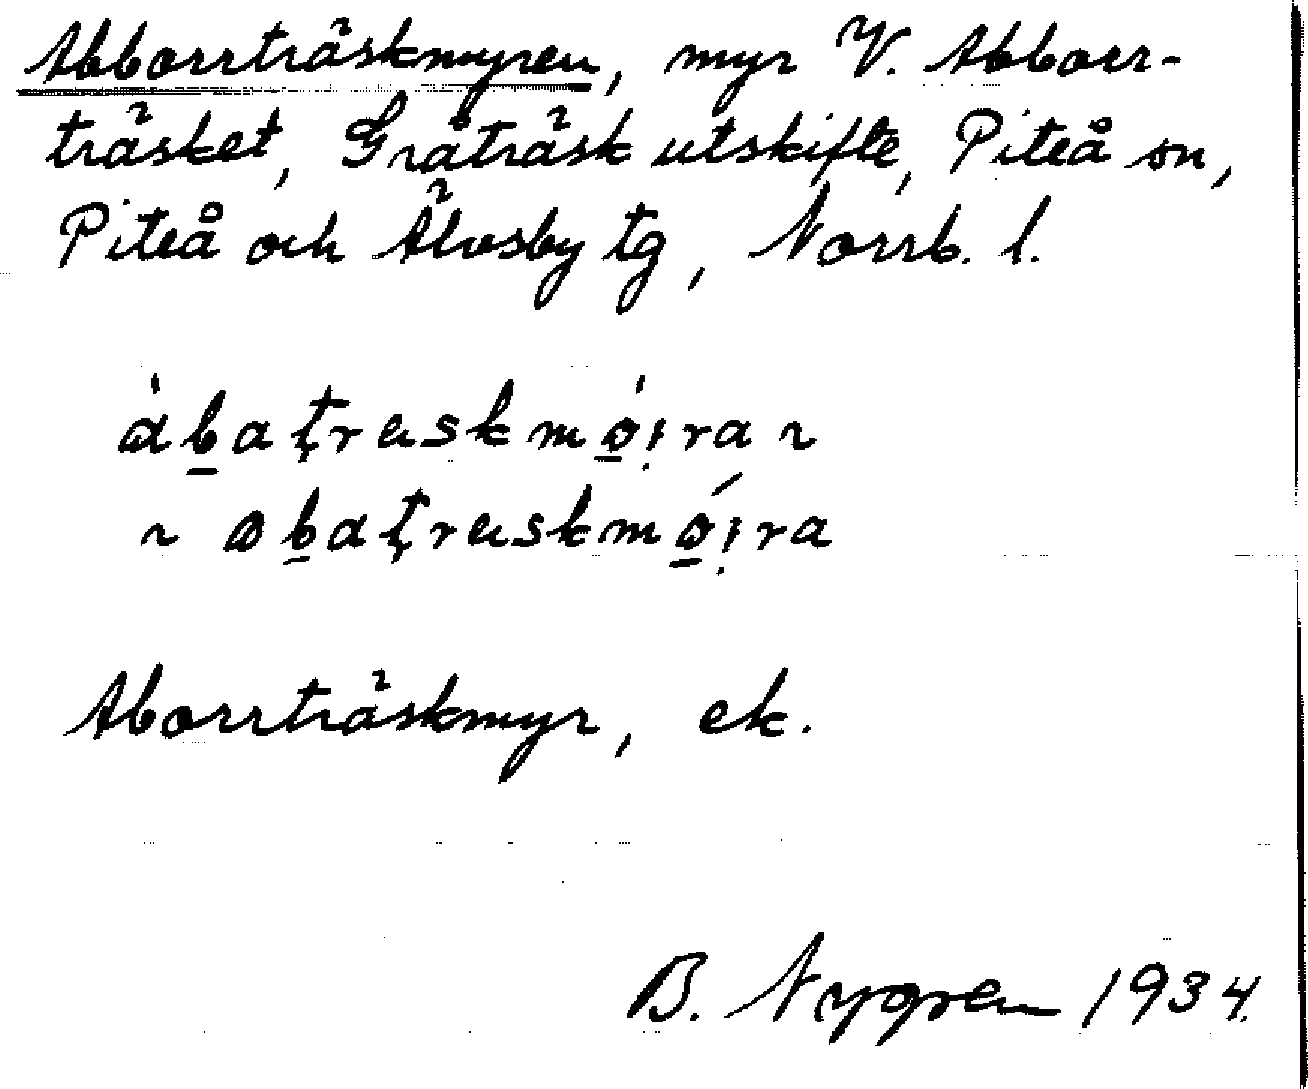 Abborrträskmyren, myr V. Abborr-
träsket, Gråträsk utskifte, Piteå sn,
Piteå och Älvsby tg, Norrb. l.
àb̲aṭræskmó̲i̤ra ~
~ ɒb̲aṭræskmó̲i̤ra
Aborrträskmyr, ek.
B. Nygren 1934.